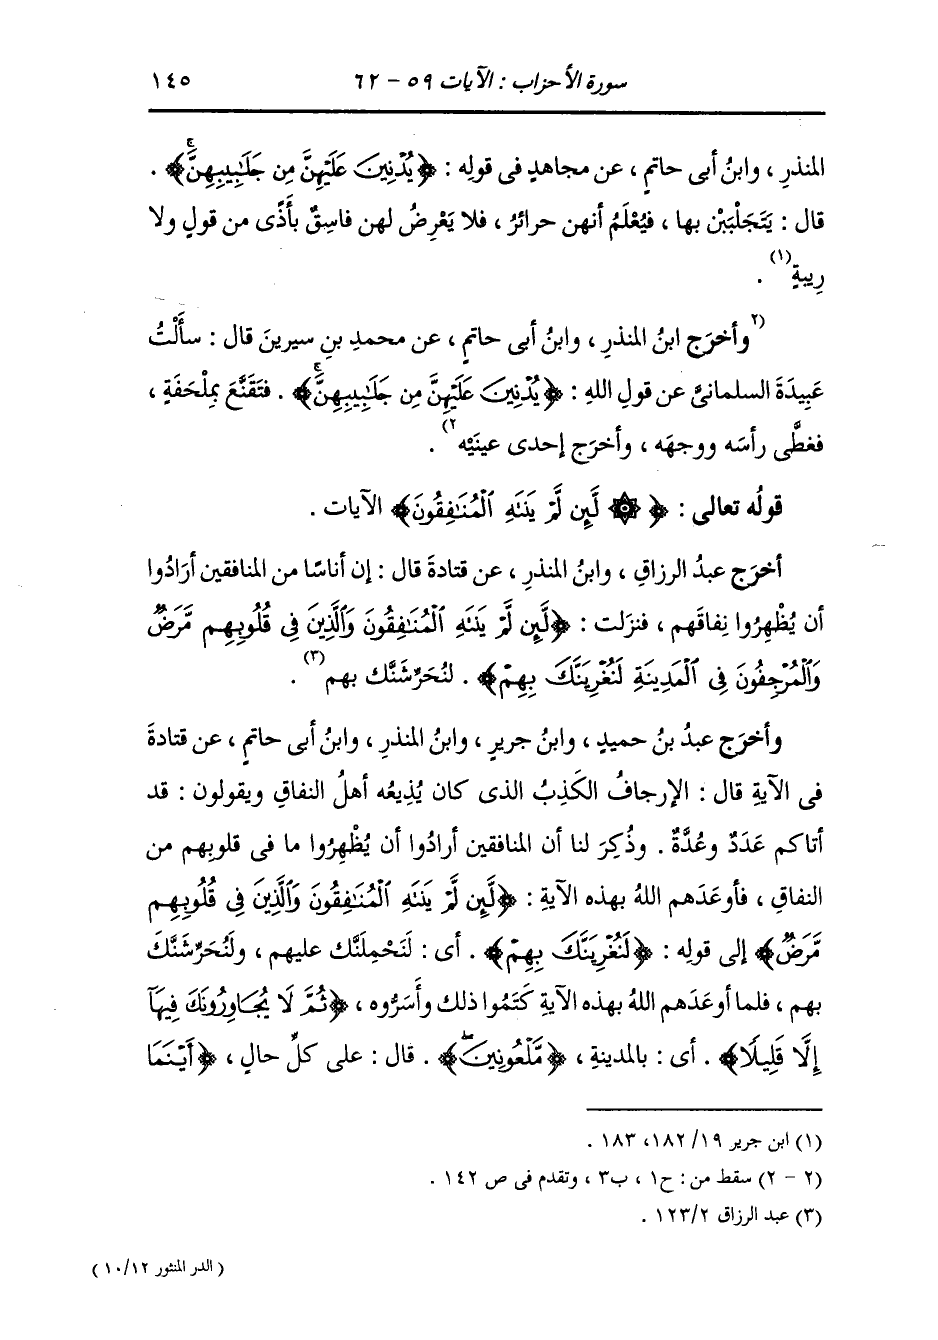 سورة الأحزاب : الآيات ٥٩ - ٦٢ ١٤٥
المنذرِ ، وابنُ أبى حاتمٍ ، عن مجاهدٍ فى قولِه : ﴿يُدْنِينَ عَلَيْهِنَّ مِن جَلَٰبِيبِهِنَّۚ﴾ .
قال : يَتَجَلْبَبْن بها ، فيُعْلَمُ أنهن حرائرُ ، فلا يَعْرِضُ لهن فاسِقٌ بأَذًى من قولٍ ولا
رِيبةٍ(١) .
(٢وأخرَج ابنُ المنذرِ ، وابنُ أبى حاتمٍ ، عن محمدِ بنِ سيرينَ قال : سأَلْتُ
عَبِيدَةَ السلمانىَّ عن قولِ اللهِ : ﴿يُدْنِينَ عَلَيْهِنَّ مِن جَلَٰبِيبِهِنَّۚ﴾ . فتَقَنَّعَ بمِلْحَفَةٍ ،
فغطَّى رأسَه ووجهَه ، وأخرَج إحدى عينَيْه٢) .
قولُه تعالى : ﴿۞ لَّئِن لَّمْ يَنتَهِ ٱلْمُنَٰفِقُونَ﴾ الآيات .
أخرَج عبدُ الرزاقِ ، وابنُ المنذرِ ، عن قتادةَ قال : إن أناسًا من المنافقين أرَادُوا
أن يُظْهِرُوا نِفاقَهم ، فنزلت : ﴿لَّئِن لَّمْ يَنتَهِ ٱلْمُنَٰفِقُونَ وَٱلَّذِينَ فِى قُلُوبِهِم مَّرَضٌ
وَٱلْمُرْجِفُونَ فِى ٱلْمَدِينَةِ لَنُغْرِيَنَّكَ بِهِمْ﴾ . لنُحَرِّشَنَّك بهم(٣) .
وأخرَج عبدُ بنُ حميدٍ ، وابنُ جريرٍ ، وابنُ المنذرِ ، وابنُ أبى حاتمٍ ، عن قتادةَ
فى الآيةِ قال : الإرجافُ الكَذِبُ الذى كان يُذِيعُه أهلُ النفاقِ ويقولون : قد
أتاكم عَدَدٌ وعُدَّةٌ . وذُكِرَ لنا أن المنافقين أرادُوا أن يُظْهِرُوا ما فى قلوبِهم من
النفاقِ ، فأوعَدَهم اللهُ بهذه الآيةِ : ﴿لَّئِن لَّمْ يَنتَهِ ٱلْمُنَٰفِقُونَ وَٱلَّذِينَ فِى قُلُوبِهِم
مَّرَضٌ﴾ إلى قولِه : ﴿لَنُغْرِيَنَّكَ بِهِمْ﴾ . أى : لَنَحْمِلنَّك عليهم ، ولَنُحَرِّشَنَّك
بهم ، فلما أوعَدَهم اللهُ بهذه الآيةِ كَتَمُوا ذلك وأَسَرُّوه ، ﴿ثُمَّ لَا يُجَاوِرُونَكَ فِيهَآ
إِلَّا قَلِيلًا﴾ . أى : بالمدينةِ ، ﴿مَّلْعُونِينَۖ﴾ . قال : على كلِّ حالٍ ، ﴿أَيْنَمَا
(١) ابن جرير ١٩/ ١٨٢، ١٨٣ .
(٢ - ٢) سقط من : ح١ ، ب٣ ، وتقدم فى ص ١٤٢ .
(٣) عبد الرزاق ١٢٣/٢ .
( الدر المنثور ١٠/١٢ )